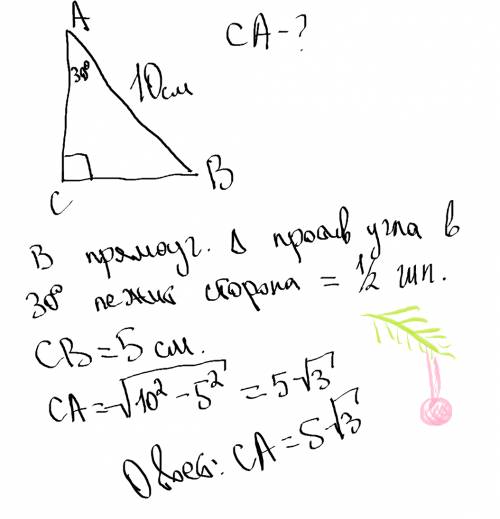 A
CA - ?
30°
10 см
C
B
В прямоуг. Δ против угла в
30° лежит сторона = 1/2 гип.
CB = 5 см.
CA = √10² - 5² = 5√3
Ответ: CA = 5√3